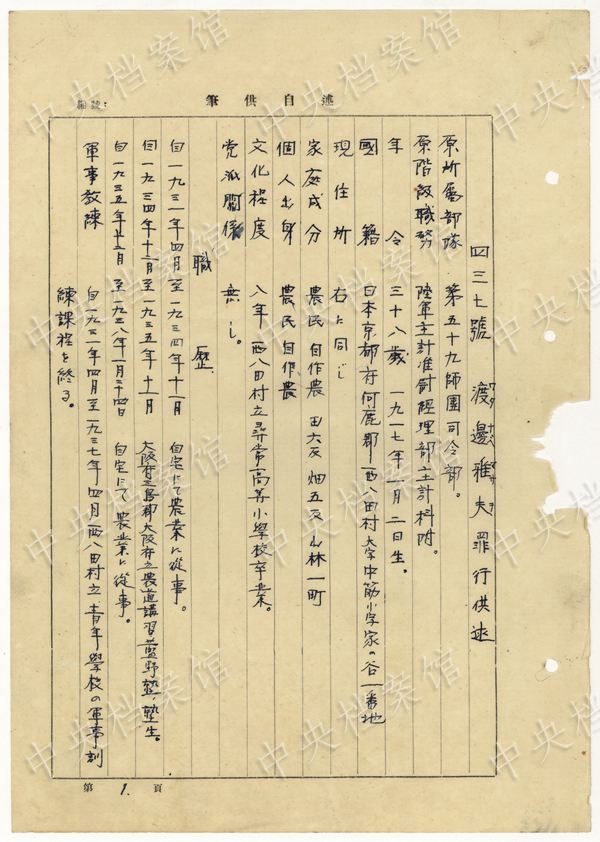 編號：
述自供筆
四三七號 渡邊雅夫罪行供述
原所屬部隊 第五十九師團司令部。
原階級職務 陸軍主計准尉 経理部主計科附。
年令 三十八歳 一九一七年一月二日生。
國籍 日本京都府何鹿郡西八田村大字中筋小字家の谷一番地
現住所 右と同じ
家庭成分 農民 自作農 田六反 畑五反 山林一町
個人出身 農民 自作農
文化程度 八年 西八田村立尋常高等小學校卒業。
党派關係 無し。
職歴
自一九三一年四月至一九三四年十一月 自宅にて農業に従事。
自一九三四年十二月至一九三五年十一月 大阪府三島郡大阪府立農道講習藍野塾、塾生。
自一九三五年十二月至一九三八年一月三十四日 自宅にて農業に従事。
軍事教練 自一九三一年四月至一九三七年四月西八田村立青年學校の軍事訓
練課程を終る。
第1.頁
中央档案馆